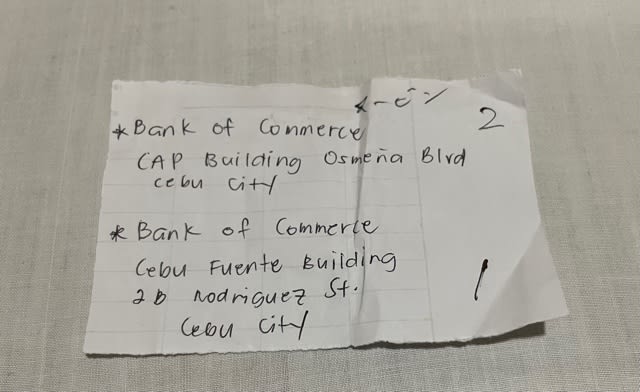 2
* Bank of Commerce
CAP Building Osmeña Blvd
Cebu City
* Bank of Commerce
Cebu Fuente Building
2B Rodriguez St.
1
Cebu City